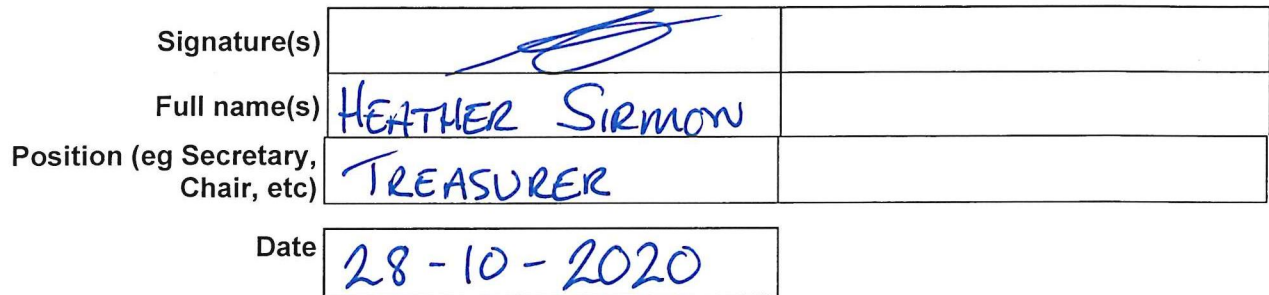 Signature(s)
Full name(s) HEATHER SIRMON
Position (eg Secretary,
Chair, etc) TREASURER
Date 28-10-2020